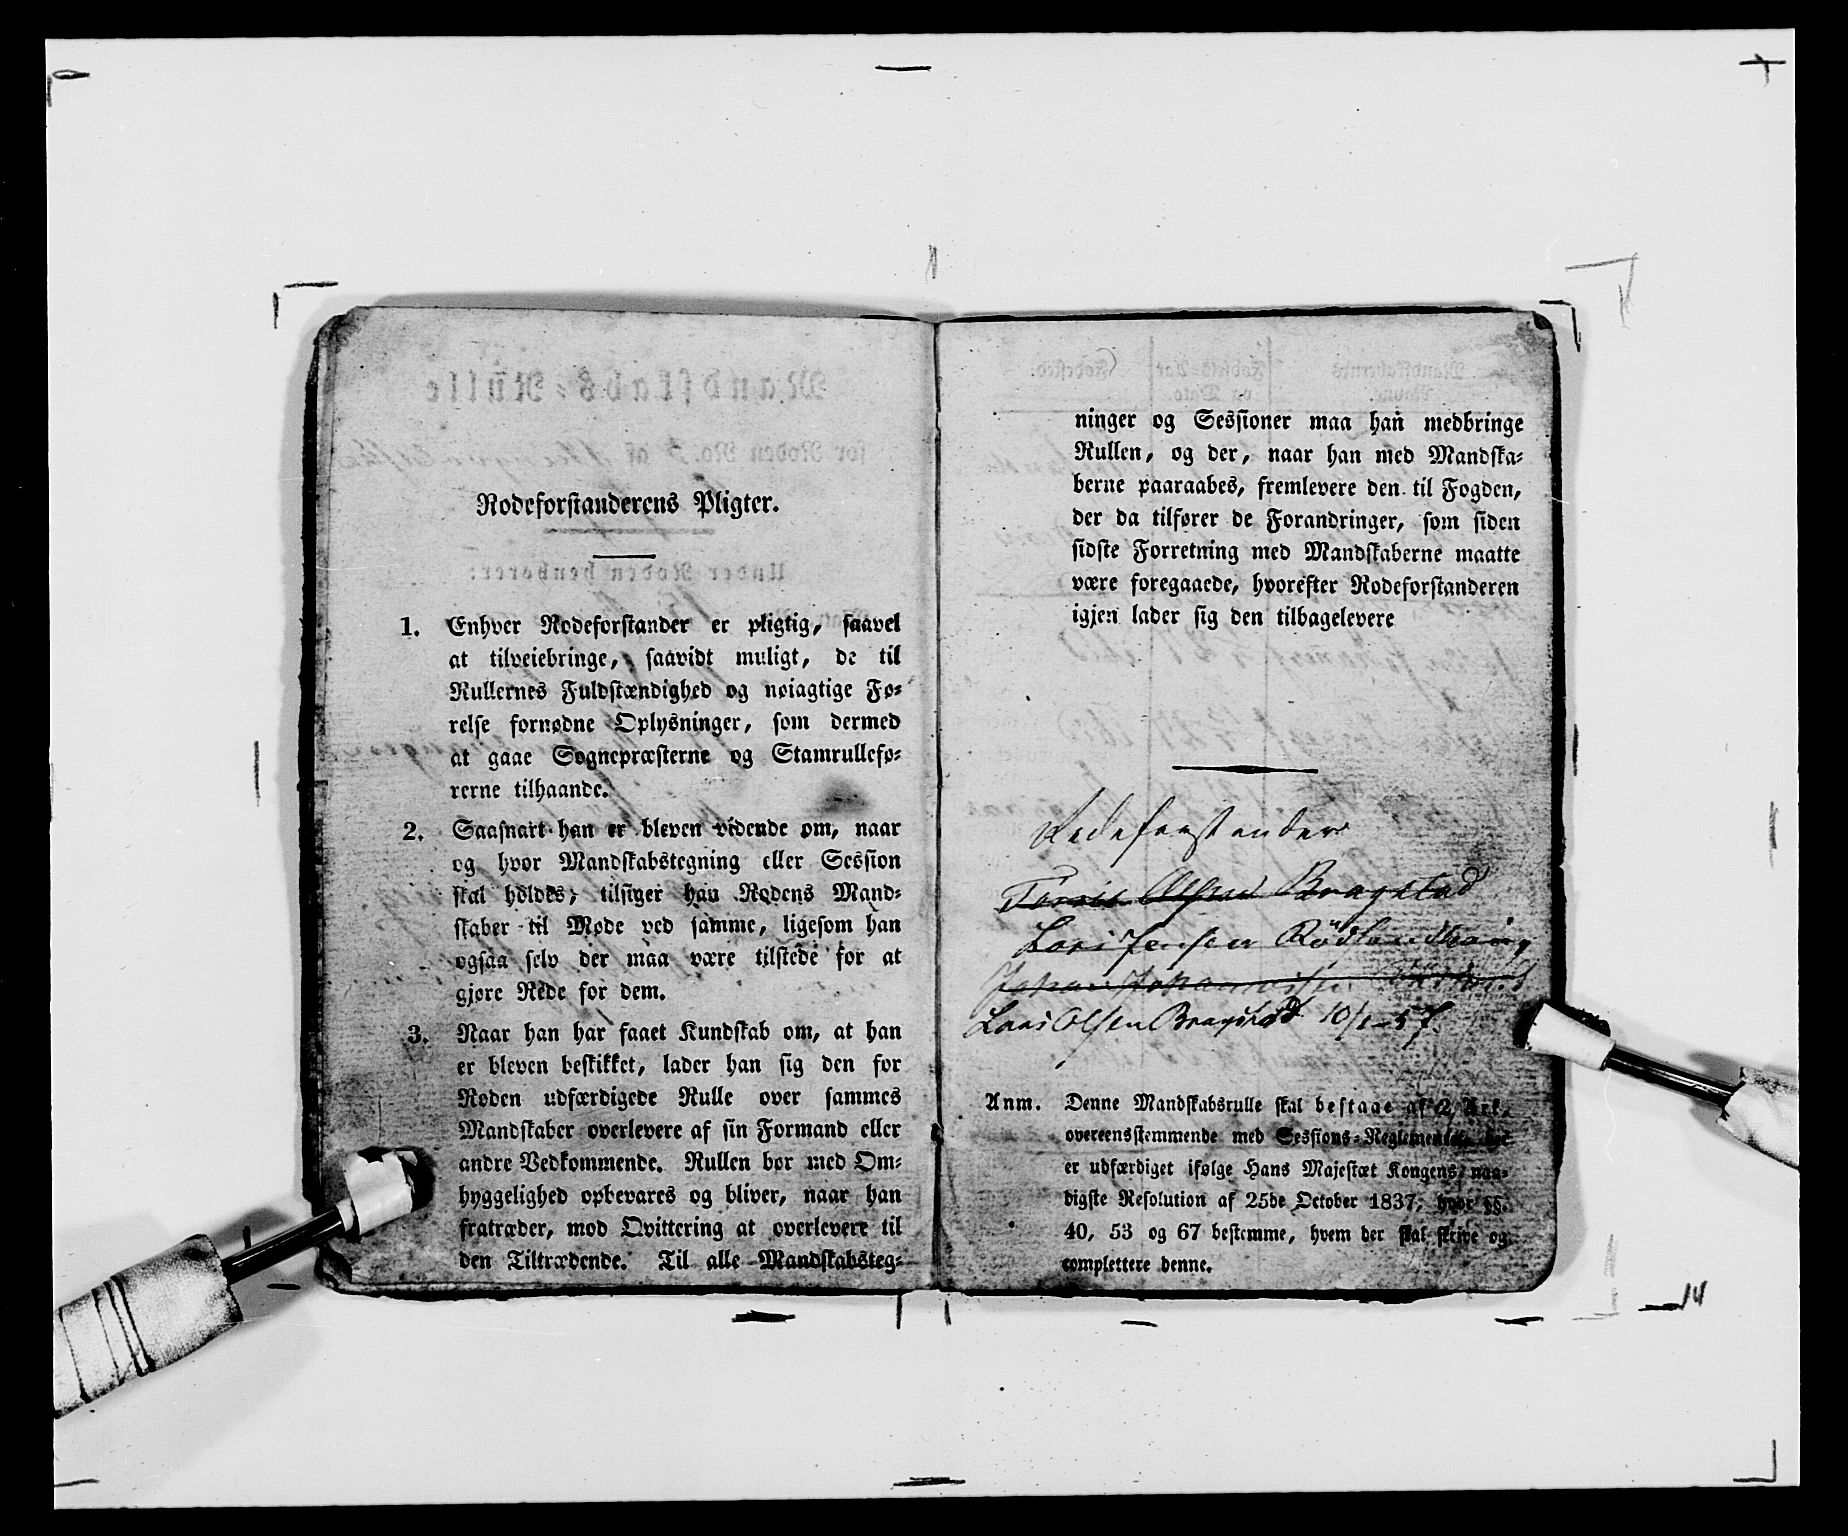 Rodeforstanderens Pligter.
1. Enhver Rodeforstander er pligtig, saavel
at tilveiebringe, saavidt muligt, de til
Rullernes Fuldstændighed og nøiagtige Fø-
relse fornødne Oplysninger, som dermed
at gaae Sognepræsterne og Stamrullefø-
rerne tilhaande.
2. Saasnart han er bleven vidende om, naar
og hvor Mandskabstegning eller Session
skal holdes, tilsiger han Rodens Mand-
skaber til Møde ved samme, ligesom han
ogsaa selv der maa være tilstede for at
gjøre Rede for dem.
3. Naar han har faaet Kundskab om, at han
er bleven beskikket, lader han sig den for
Roden udfærdigede Rulle over sammes
Mandskaber overlevere af sin Formand eller
andre Vedkommende. Rullen bør med Om-
hyggelighed opbevares og bliver, naar han
fratræder, mod Qvittering at overlevere til
den Tiltrædende. Til alle Mandskabsteg-
ninger og Sessioner maa han medbringe
Rullen, og der, naar han med Mandska-
berne paaraabes, fremlevere den til Fogden,
der da tilfører de Forandringer, som siden
sidste Forretning med Mandskaberne maatte
være foregaaede, hvorefter Rodeforstanderen
igjen lader sig den tilbagelevere
Rodeforstander
Olsen Bragstad
Lars Jensen
Johan Johannessen
Lars Olsen Bragstad 10/1-57.
Anm. Denne Mandskabsrulle skal bestaae af 2 Ark,
overeensstemmende med Sessions-Reglementet, der
er udfærdiget ifølge Hans Majestæt Kongens naa-
digste Resolution af 25de October 1837, hvor §§.
40, 53 og 67 bestemme, hvem der skal skrive og
complettere denne.
14